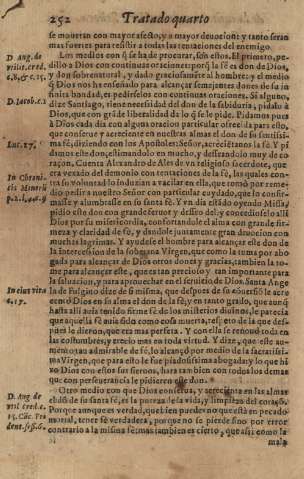 252 Tratado quarto
se moueran con mayor afecto, y a mayor deuocion: y tanto seran
mas fuertes para resistir a todas las tentaciones del enemigo.
D. Aug. de
vtilit. cred.
c. 8, & c. 15.
Los medios con q̃ se ha de procurar, son estos. El primero, pe-
dillo a Dios con continuas oraciones: porq̃ la fè es don de Dios,
y don sobrenatural, y dado graciosamẽte al hombre: y el medio
q̃ Dios nos ha enseñado para alcançar semejantes dones de su in
finita bondad, es pedirselos con continuas oraciones. Si alguno,
D. Iacob. c. 1
dize Santiago, tiene necessidad del don de la sabiduria, pidalo à
Dios, que con grãde liberalidad da lo q̃ se le pide. Pidamos pues
à Dios cada dia con alguna oracion particular ofrecida para esto,
que conserue y acreciente en nuestras almas el don de su santissi-
Luc. 17.
ma fè, diziendo con los Apostoles: Señor, acrecẽtanos la fè. Y pi
damos este don, estimandolo en mucho, y desseandolo muy de co-
raçon. Cuenta Alexandro de Ales de vn religioso sacerdote, que
In Chroni-
cis Minorũ
era vexado del demonio con tentaciones de la fè, las quales con-
tra su voluntad lo induzian a vacilar en ella, que tomò por reme-
dio pedir a nuestro Señor con particular cuydado, que lo confir-
masse y alumbrasse en su santa fè. Y vn dia estãdo oyendo Missa,
pidio este don con grande feruor y desseo del, y concediosele alli
Dios por su misericordia, confortandole el alma con grande fir-
meza y claridad de fè, y dandole juntamente gran deuocion con
muchas lagrimas. Y ayudese el hombre para alcançar este don de
la intercession de la soberana Virgen, que como la toma por abo
gada para alcançar de Dios otros dones y gracias, tambien la to-
me para alcançar este, que es tan precioso y tan importante para
la saluacion, y para aprouechar en el seruicio de Dios. Santa Ange
In eius vita
c. 17.
la de Fulgino dize de si misma, que despues de su conuersió le acre
centò Dios en su alma el don de la fè, y en tanto grado, que aunq̃
hasta alli auia tenido firme fè de los misterios diuinos, le parecia
que aquella fè auia sido como cosa muerta, respeto de la que des-
pues le dieron, que era mas perfeta. Y con ella se renouò toda en
las costumbres, y crecio mas en toda virtud. Y dize, que este au-
mento tan admirable de fè, lo alcançò por medio de la sacratissi-
ma Virgen, que para esto le fue piadosissima abogada: y lo que hi
zo Dios con estos sus sieruos, hara tambien con todos los demas
que con perseuerãcia le pidieren este don.
D. Aug. de
vtil. cred. c.
Otro medio con que Dios conserua, y acrecienta en las almas
el dõ de su santa fè, es la pureza de la vida, y limpieza del coraçõ.
Porque aunque es verdad, que bien puede vno que està en pecado
mortal, tener fè verdadera, porque no se pierde sino por error
contrario a la misma fè: mas tambien es cierto, que assi como la
mala